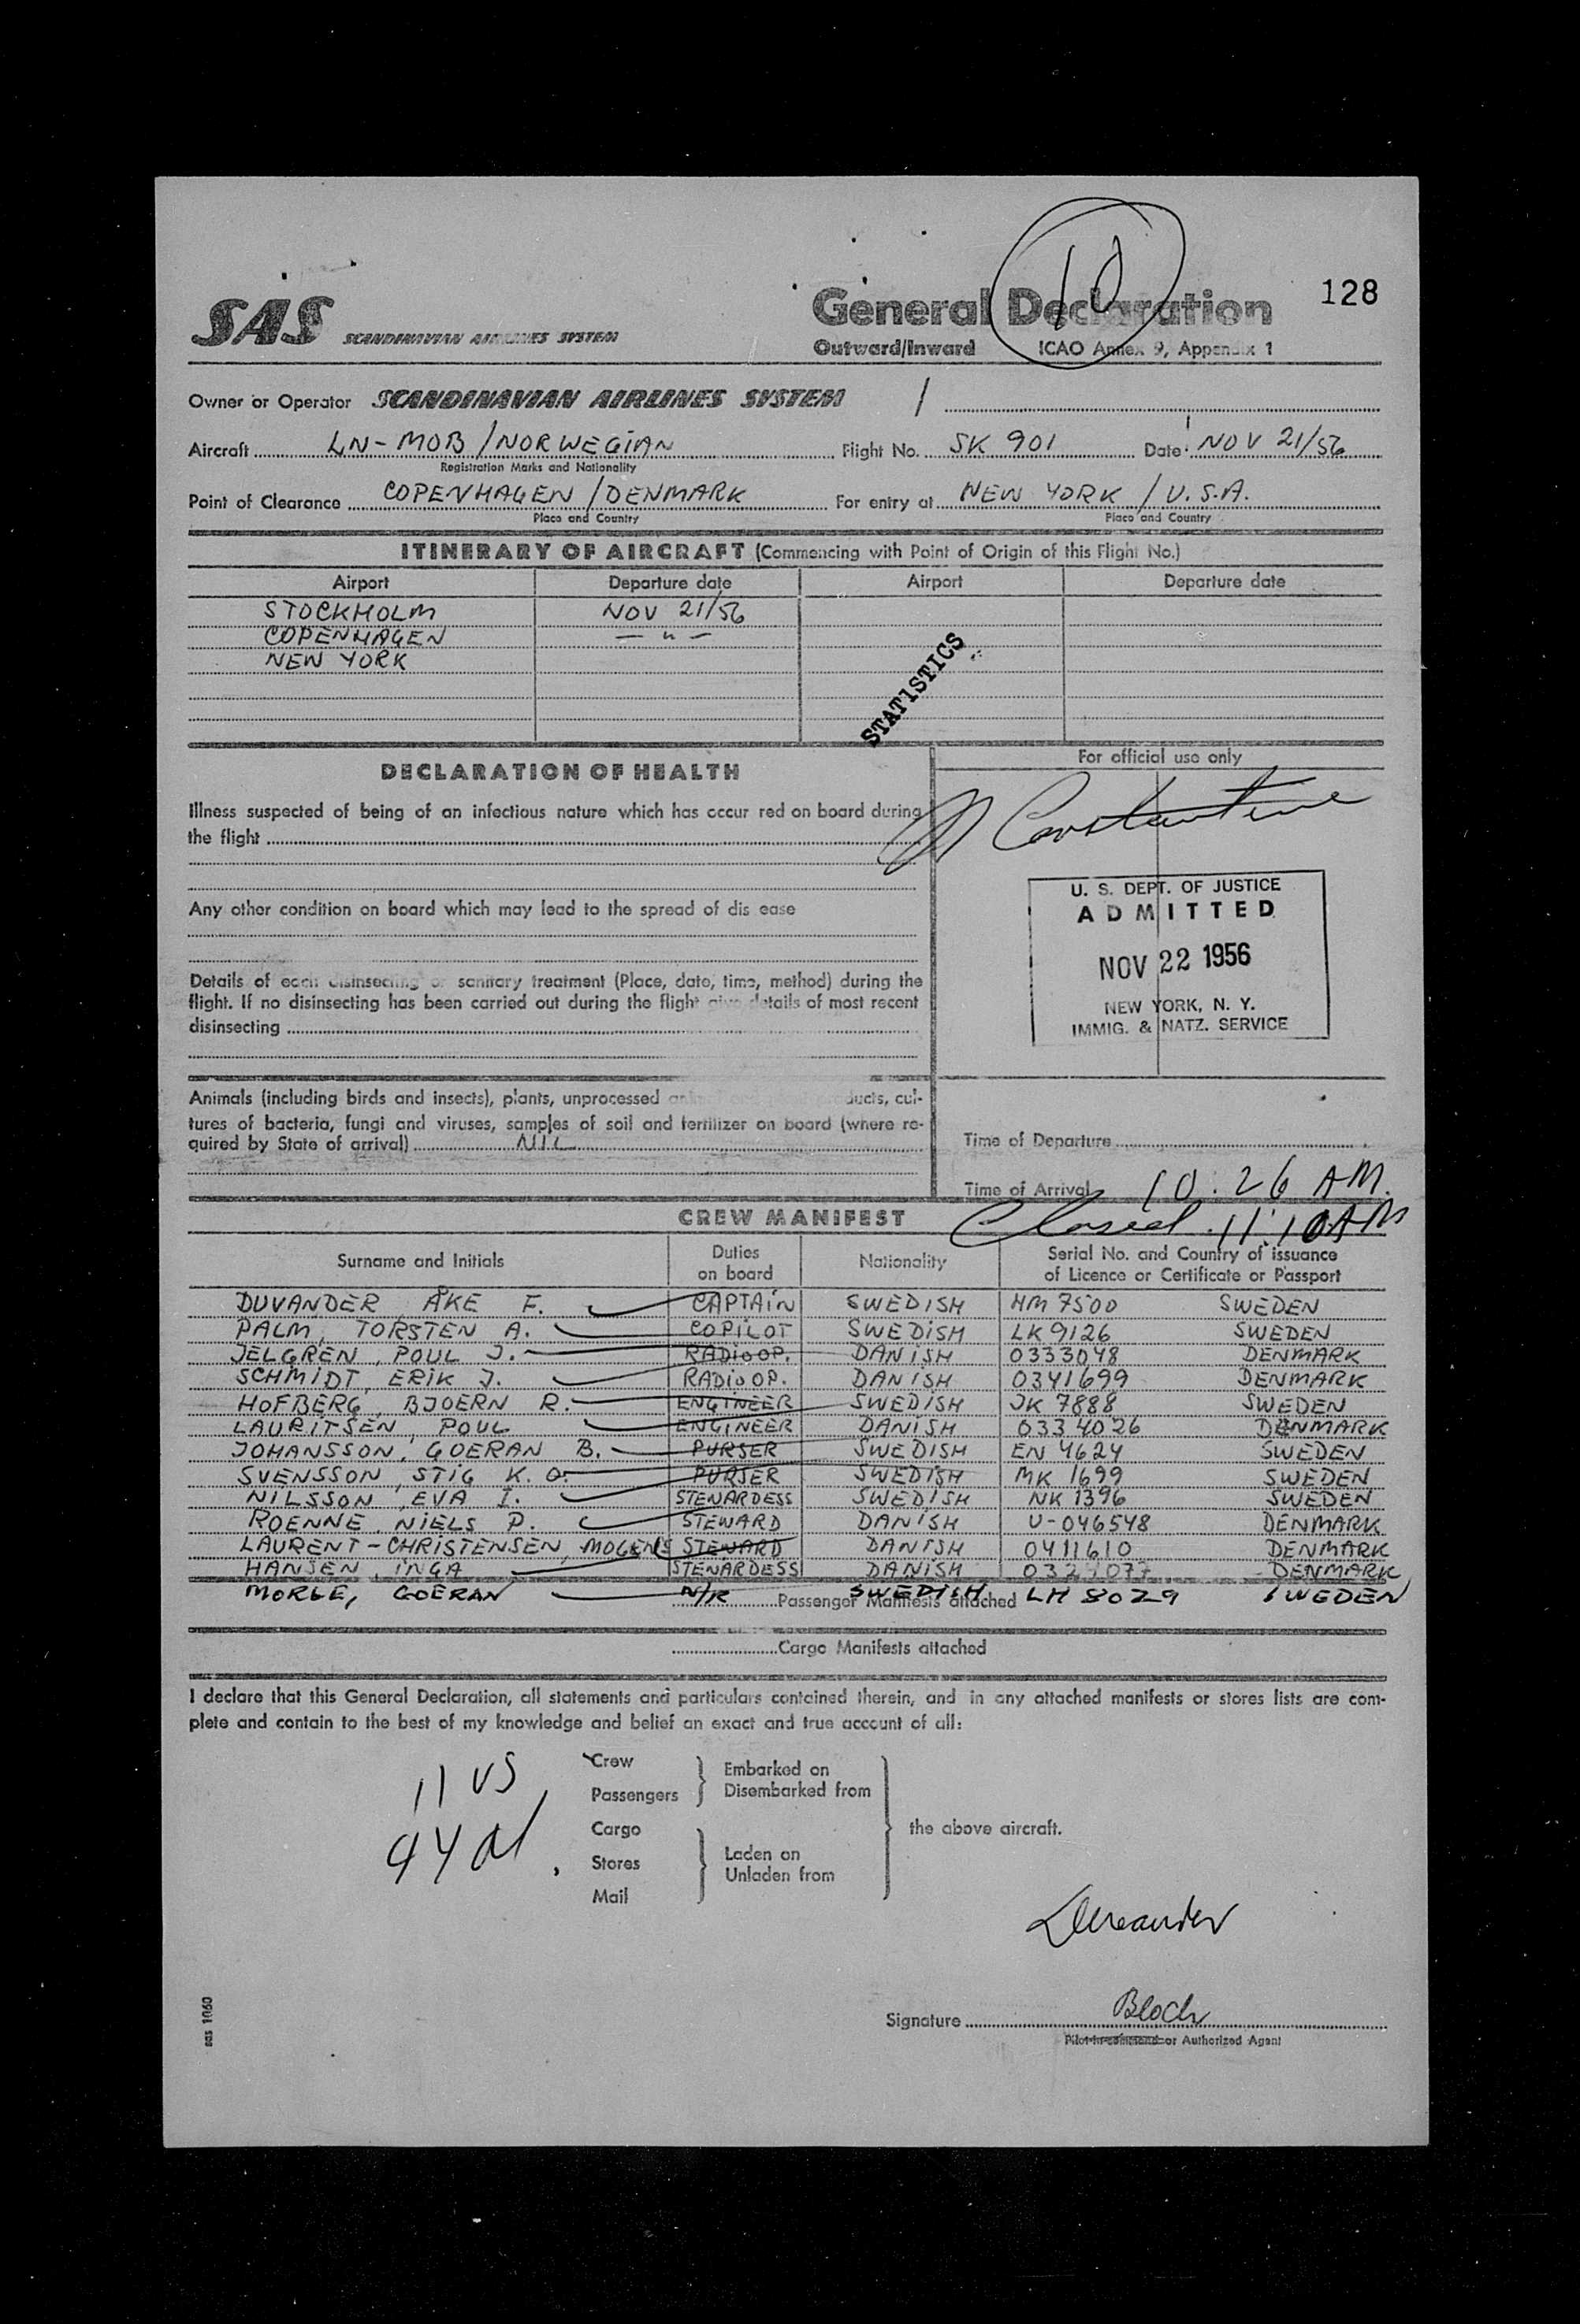 10
128
SAS SCANDINAVIAN AIRLINES SYSTEM
General Declaration
Outward/Inward ICAO Annex 9, Appendix 1
Owner or Operator SCANDINAVIAN AIRLINES SYSTEM /
Aircraft LN-MOB/NORWEGIAN Flight No. SK 901 Date NOV 21/56
Registration Marks and Nationality
Point of Clearance COPENHAGEN/DENMARK For entry at NEW YORK / U.S.A.
Place and Country Place and Country
ITINERARY OF AIRCRAFT (Commencing with Point of Origin of this Flight No.)
Airport Departure date Airport Departure date
STOCKHOLM NOV 21/56
COPENHAGEN — " —
NEW YORK
STATISTICS
DECLARATION OF HEALTH
For official use only
Illness suspected of being of an infectious nature which has occur red on board during
the flight
Constantine
Any other condition on board which may lead to the spread of dis ease
U. S. DEPT. OF JUSTICE
ADMITTED
NOV 22 1956
NEW YORK, N. Y.
IMMIG. & NATZ. SERVICE
Details of each disinsecting or sanitary treatment (Place, date, time, method) during the
flight. If no disinsecting has been carried out during the flight give details of most recent
disinsecting
Animals (including birds and insects), plants, unprocessed products, cul-
tures of bacteria, fungi and viruses, samples of soil and fertilizer on board (where re-
quired by State of arrival) NIL
Time of Departure
Time of Arrival 10:26 AM.
Closed 11:10AM
CREW MANIFEST
Surname and Initials Duties on board Nationality Serial No. and Country of issuance of Licence or Certificate or Passport
DUVANDER ÅKE F. CAPTAIN SWEDISH HM 7500 SWEDEN
PALM, TORSTEN A. COPILOT SWEDISH LK 9126 SWEDEN
JELGREN, POUL J. RADIO OP. DANISH 0333048 DENMARK
SCHMIDT, ERIK J. RADIO OP. DANISH 0341699 DENMARK
HOFBERG, BJOERN R. ENGINEER SWEDISH JK 7888 SWEDEN
LAURITSEN, POUL ENGINEER DANISH 0334026 DENMARK
JOHANSSON, GOERAN B. PURSER SWEDISH EN 4624 SWEDEN
SVENSSON, STIG K. O. PURSER SWEDISH MK 1699 SWEDEN
NILSSON, EVA I. STEWARDESS SWEDISH NK 1396 SWEDEN
ROENNE, NIELS P. STEWARD DANISH U-046548 DENMARK
LAURENT-CHRISTENSEN, MOGENS STEWARD DANISH 0411610 DENMARK
HANSEN, INGA STEWARDESS DANISH 0329077 DENMARK
MORGE, GOERAN N/R SWEDISH LH 8029 SWEDEN
Passenger Manifests attached
Cargo Manifests attached
I declare that this General Declaration, all statements and particulars contained therein, and in any attached manifests or stores lists are com-
plete and contain to the best of my knowledge and belief an exact and true account of all:
11 US
44 al
Crew
Passengers
Embarked on
Disembarked from
Cargo
Stores
Mail
Laden on
Unladen from
the above aircraft.
Duvander
Signature Bloch
Pilot-in-command or Authorized Agent
sas 1060